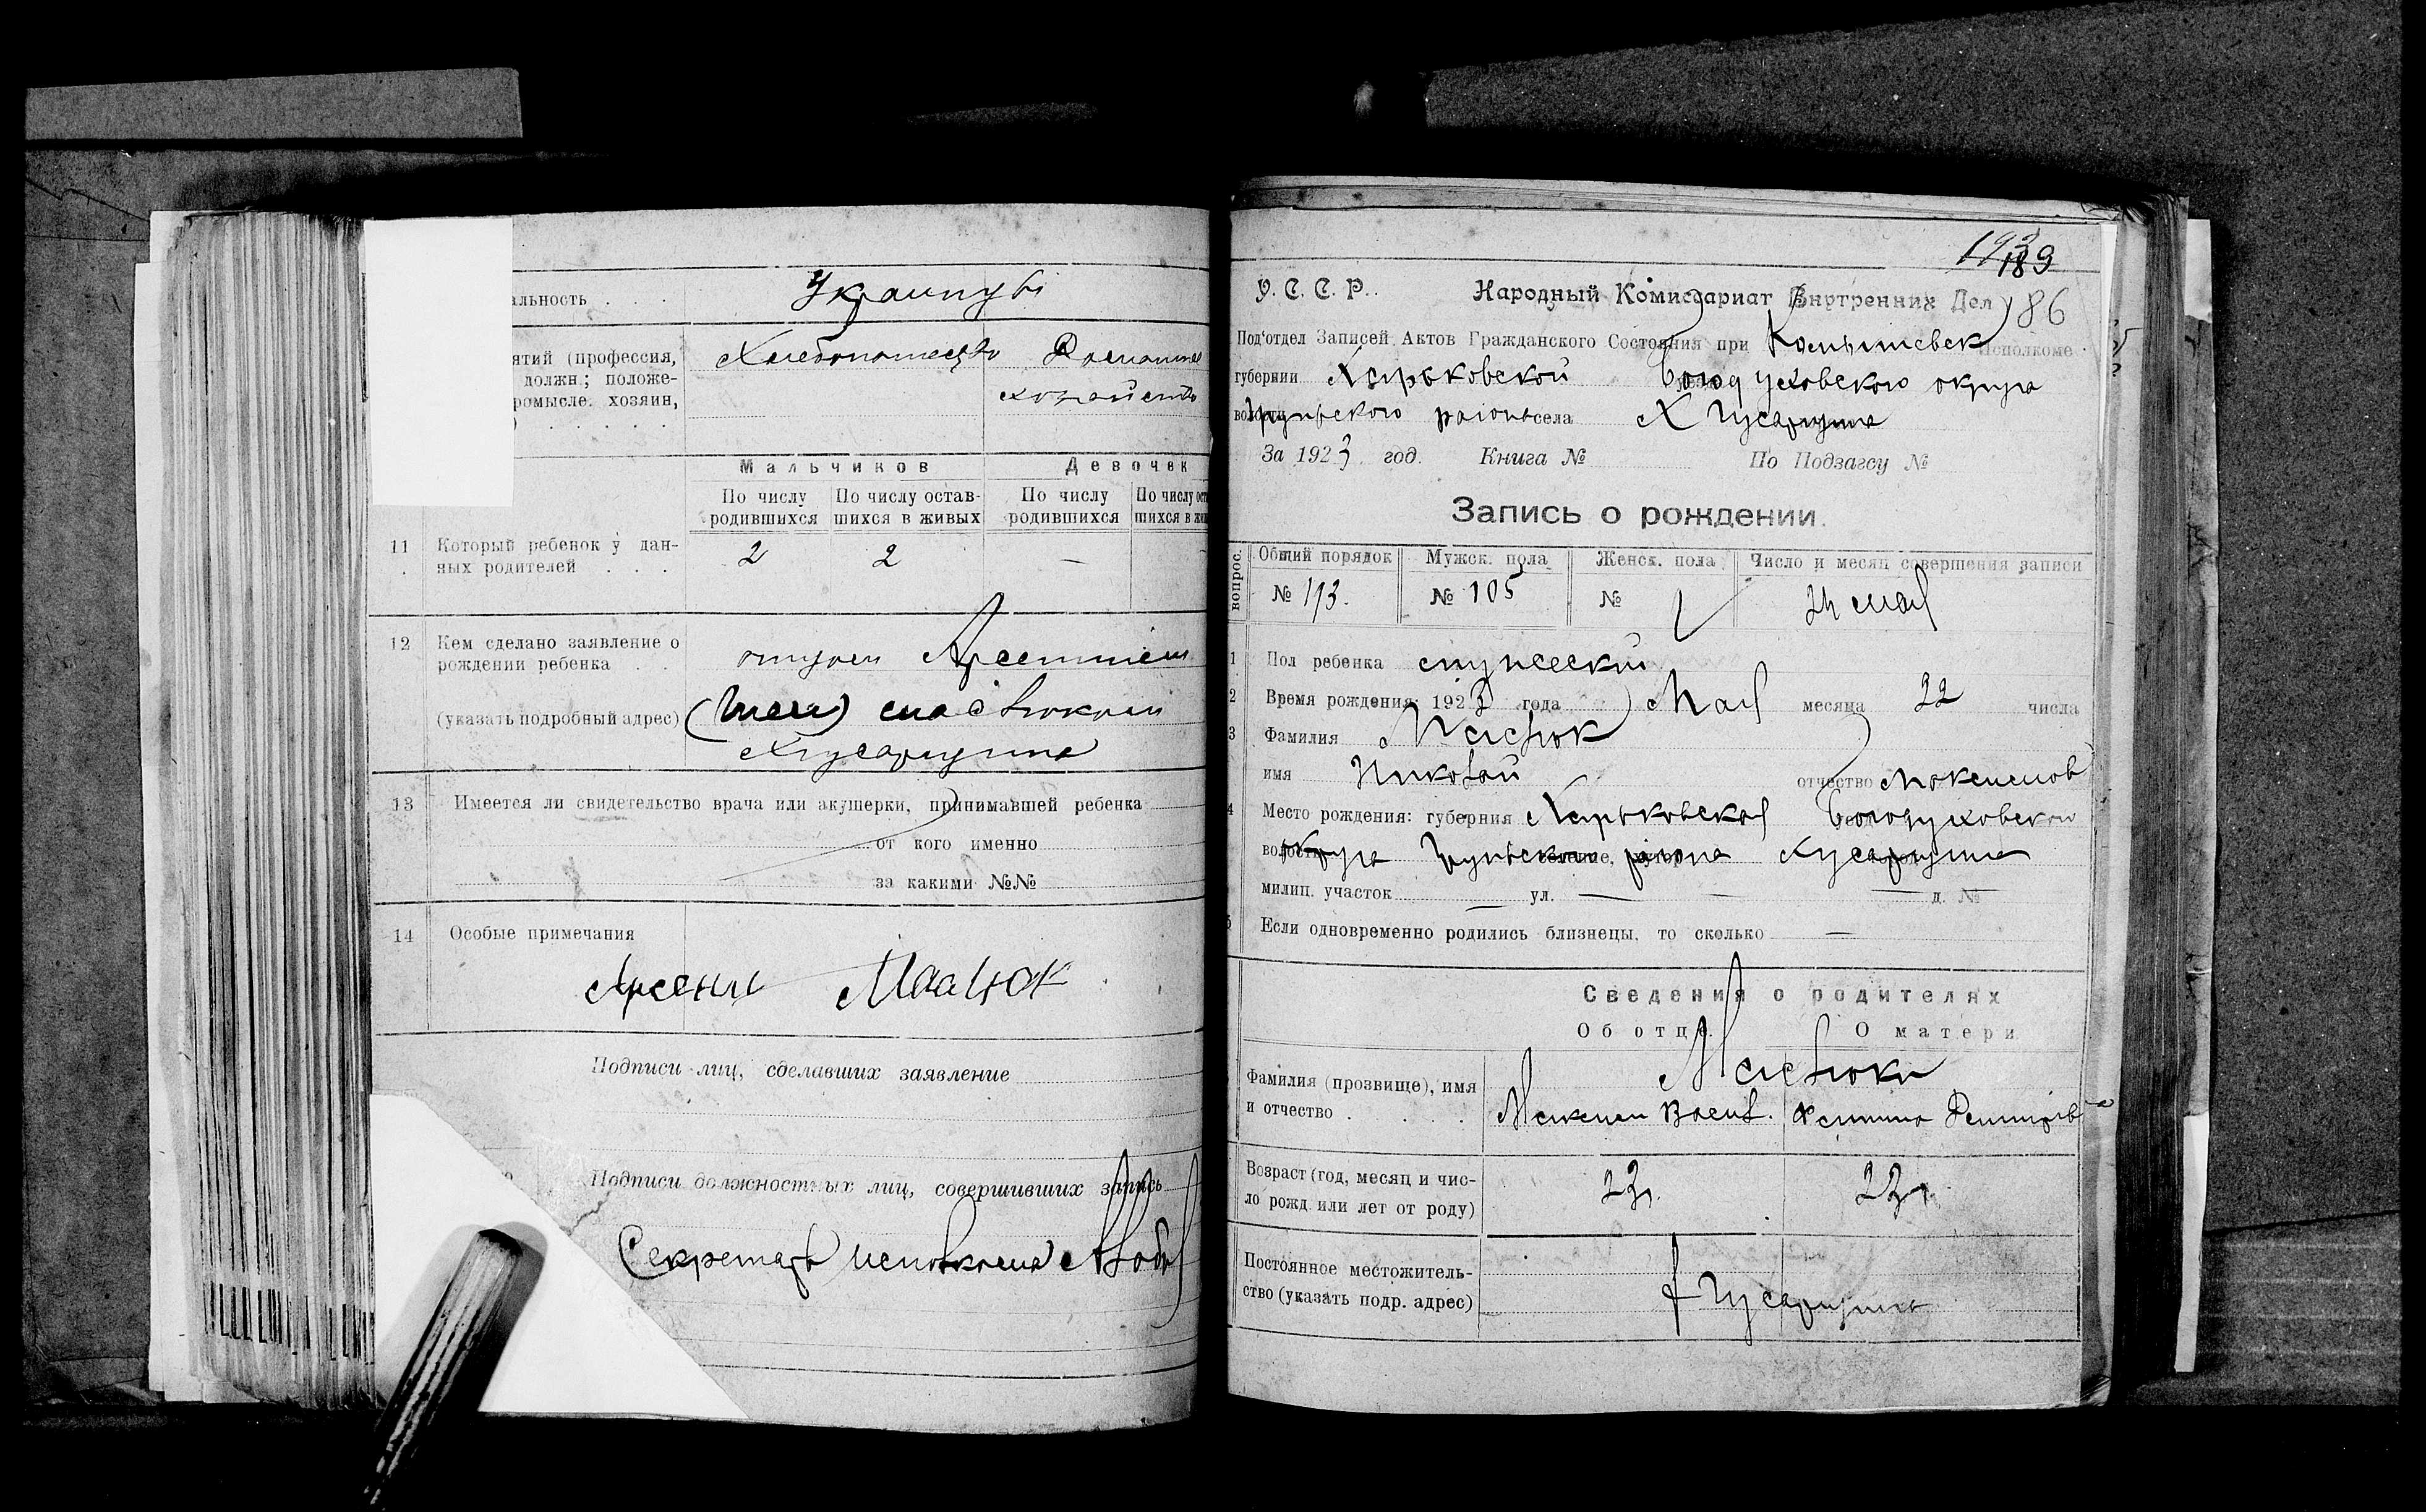 альность
Украинцы
ятий (профессия,
должн.; положе-
ромысле. хозяин,
)
Хлебопашество
Домашнее
хозяйство
Мальчиков
Девочек
По числу родившихся
По числу остав-шихся в живых
По числу родившихся
По числу ост
шихся в жи
11 Который ребенок у дан-
ных родителей
2 2 —
12 Кем сделано заявление о
рождении ребенка
отцом Арсением
(указать подробный адрес)
13 Имеется ли свидетельство врача или акушерки, принимавшей ребенка
от кого именно
за какими №№
14 Особые примечания
Арсений Масюк
Подписи лиц, сделавших заявление
Подписи должностных лиц, совершивших запись
Секретарь исполкома
189
186
У. С. С. Р. Народный Комиссариат Внутренних Дел
Под'отдел Записей Актов Гражданского Состояния при Исполкоме
губернии Харьковской Богодуховского округа
района села Х Гусарщина
За 1923 год. Книга № По Подзагсу №
Запись о рождении.
вопрос.
Общий порядок Мужск. пола Женск. пола Число и месяц совершения записи
№ 193. № 105 № 24 мая
1 Пол ребенка мужеский
2 Время рождения: 1923 года Мая месяца 22 числа
3 Фамилия
имя Николай отчество Максимов
4 Место рождения: губерния Харьковская Богодуховского
округа района
милиц. участок — ул. — д. № —
Если одновременно родились близнецы, то сколько —
Сведения о родителях
Об отце. О матери
Фамилия (прозвище), имя
и отчество
Максим Васил.
Возраст (год, месяц и чис-
ло рожд. или лет от роду)
23 г. 23 г.
Постоянное местожитель-
ство (указать подр. адрес)
Х Гусарщина